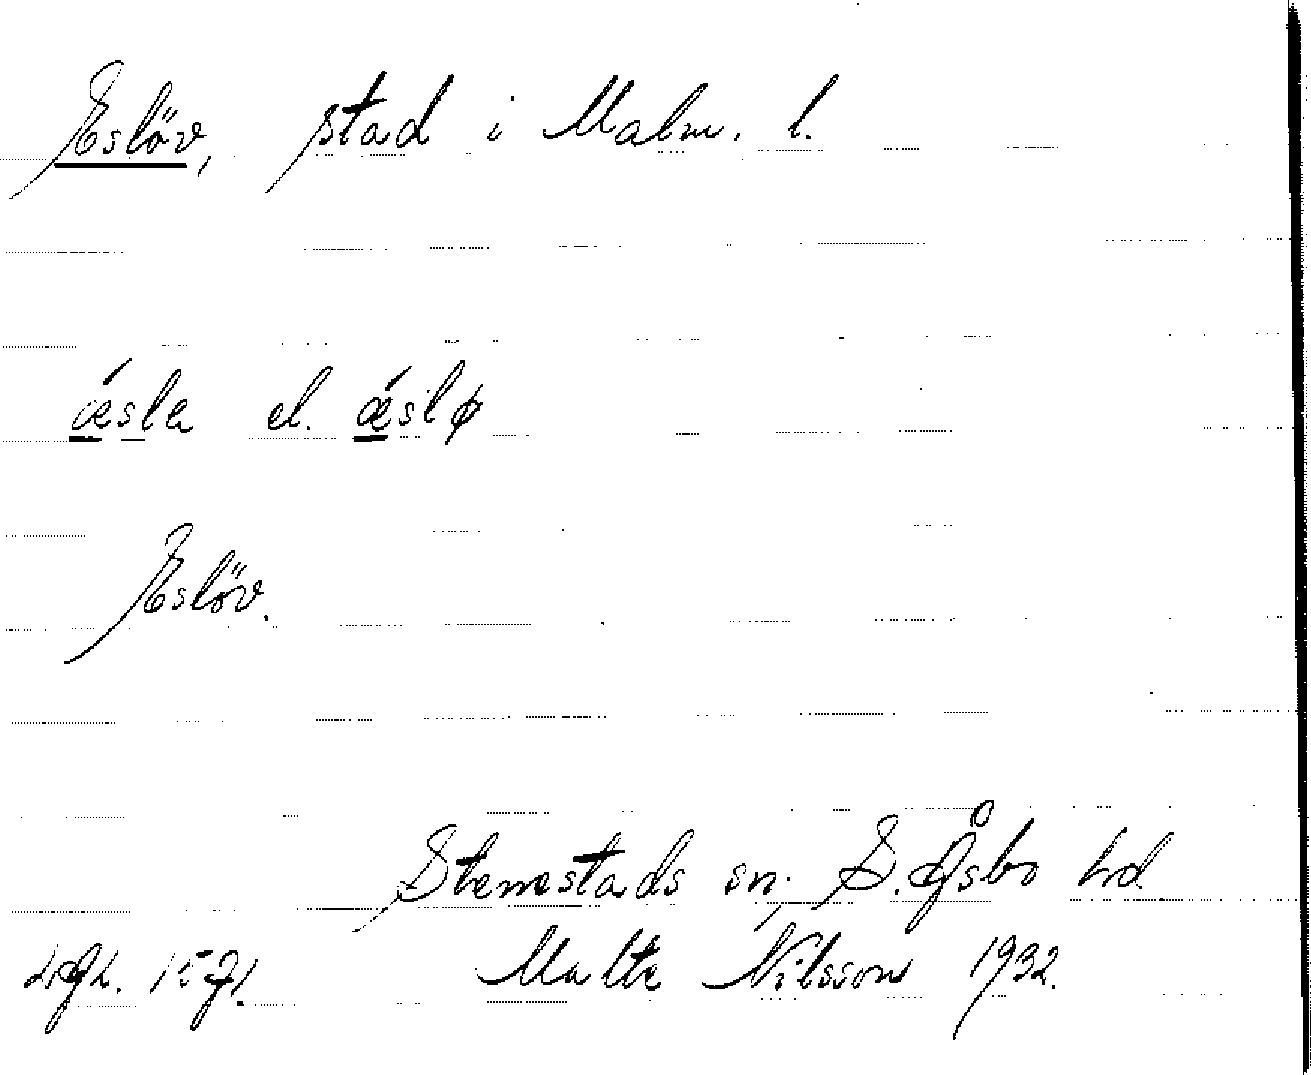 Eslöv, stad i Malm. l.
ǽsla el. ǽslø
Eslöv.
Stenestads sn, S. Åsbo hd.
Malte Nilsson 1932.